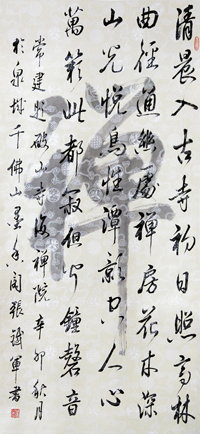 清晨入古寺初日照高林
曲徑通幽處禪房花木深
山光悅鳥性潭影空人心
萬籟此都寂但聞鐘磬音
常建題破山寺後禪院辛卯秋月
於泉城千佛山墨香閣張鐵軍書
禪